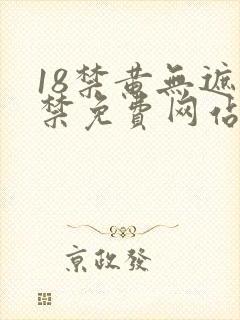 18禁黄無遮
禁免費网佔
京政發